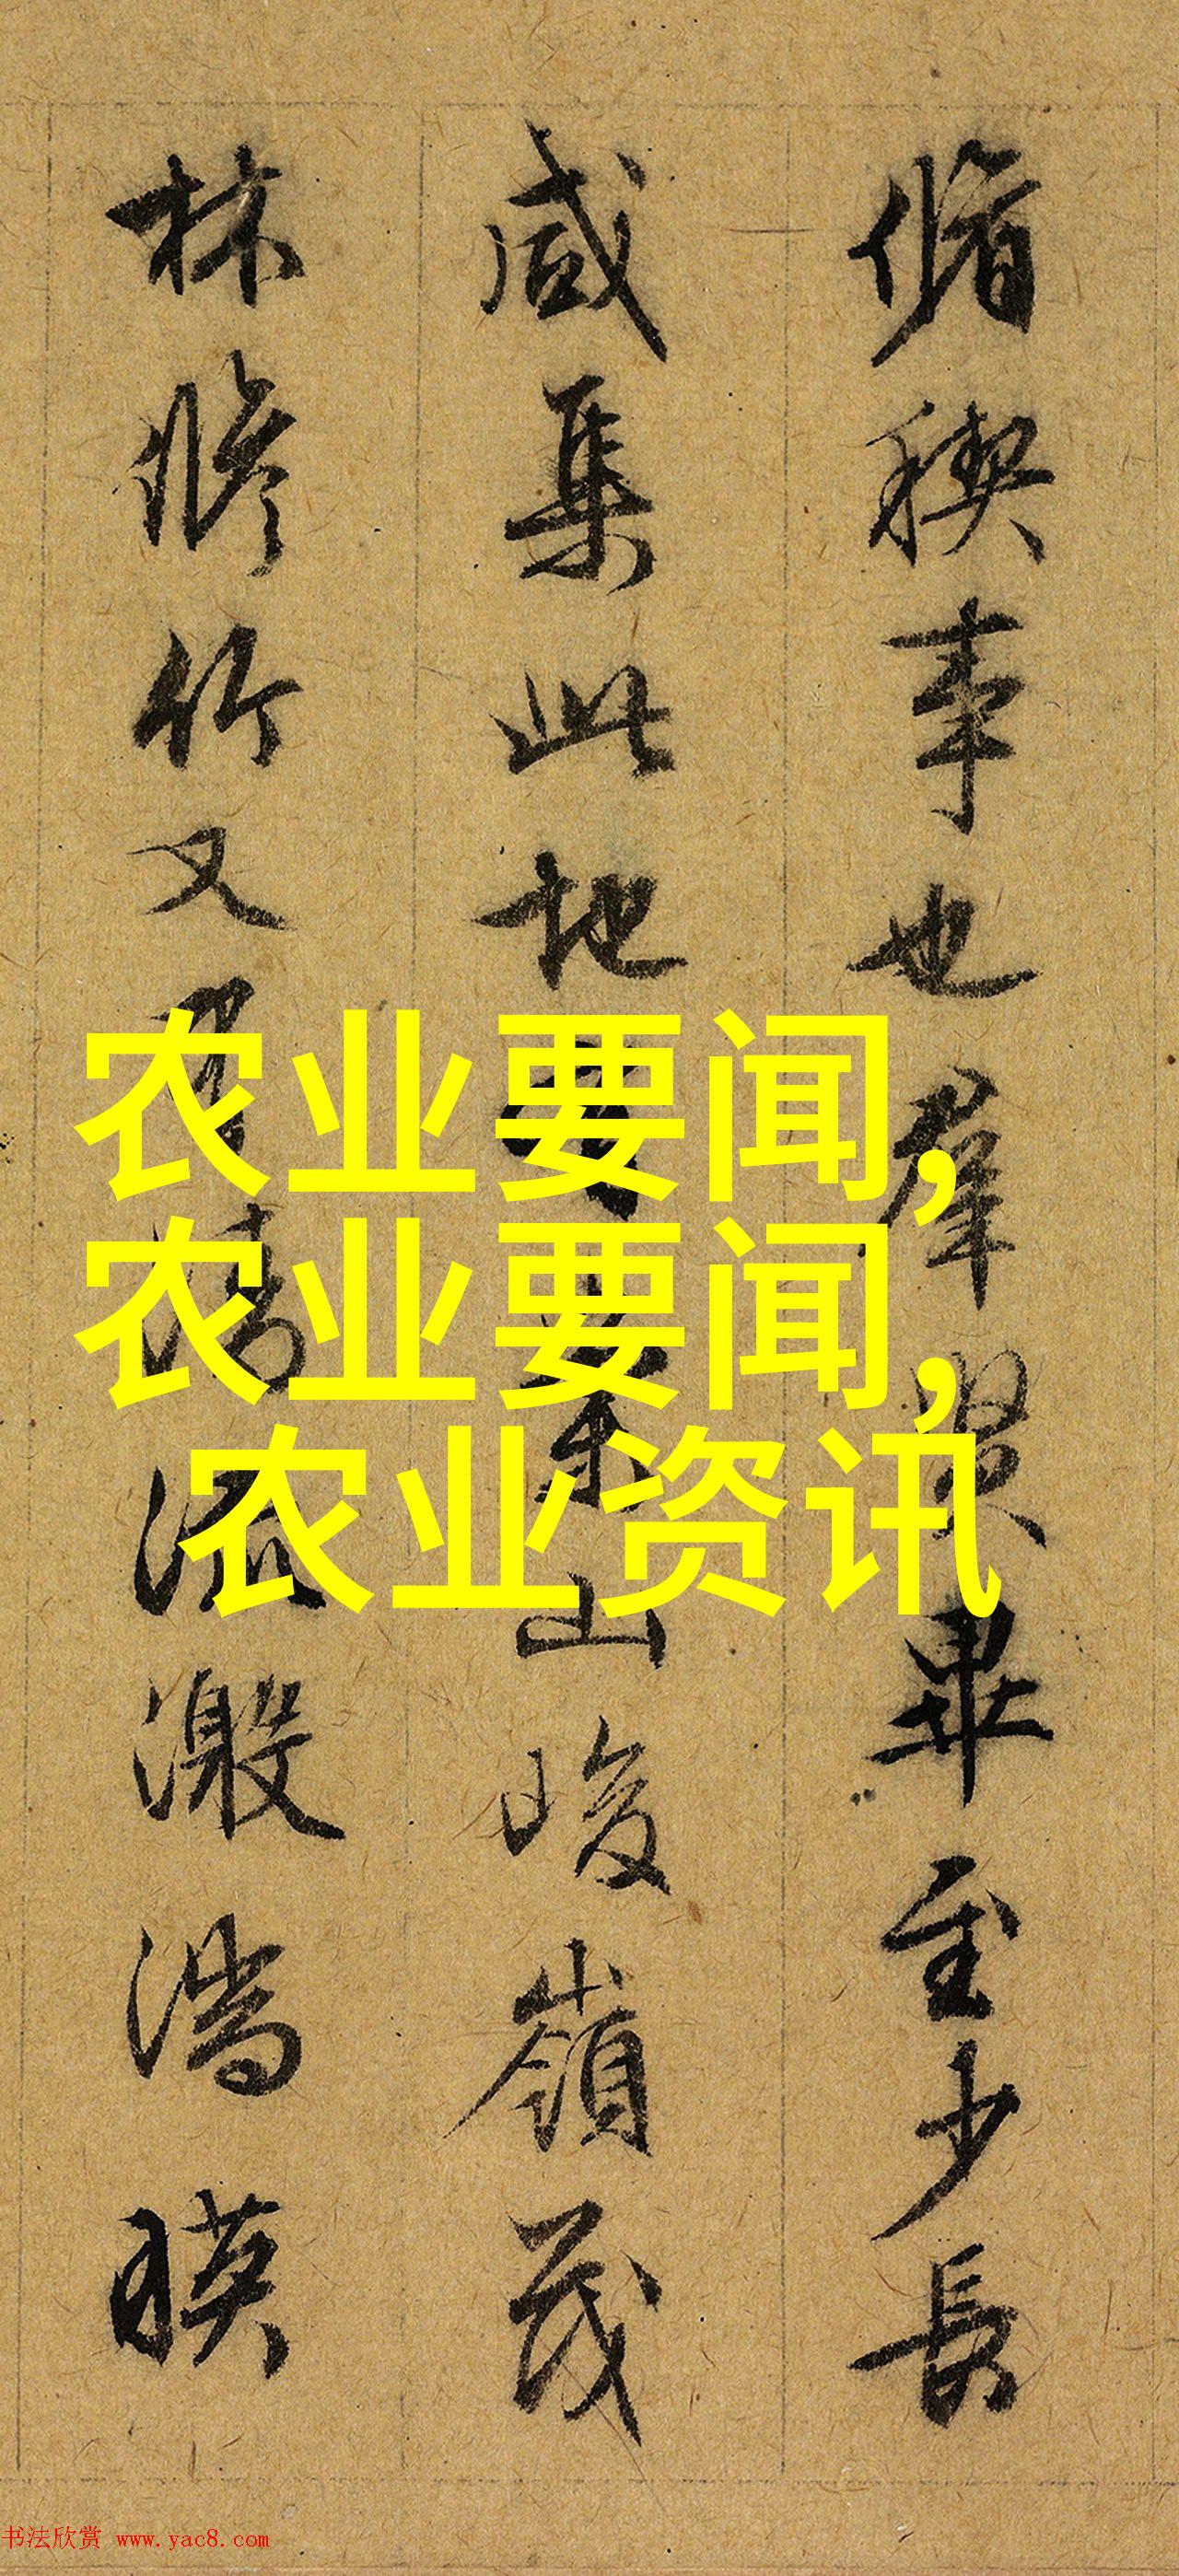 脩稧事也羣賢畢至少長
咸集此地有崇山峻嶺茂
林脩竹又有清流激湍暎
农业要闻,
农业要闻,
农业资讯
书法欣赏 www.yac8.com